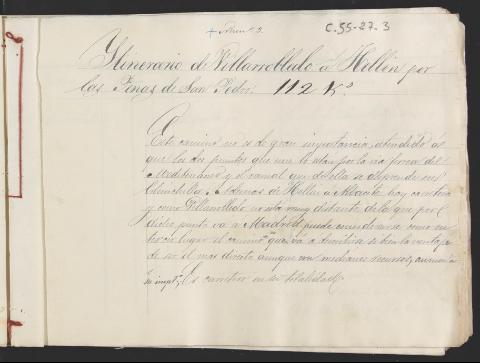 C.55-27.3
Ytinerario de Villarrobledo á Hellin por
las Peñas de San Pedro. 112 K.º
Este camino no es de gran importancia, atendido á
que los dos puntos que une lo estan por la via ferrea del
Mediterraneo y el ramal que de ella se desprende en
Chinchilla. Ademas de Hellin á Albacete hay carretera
y como Villarrobledo no está muy distante de la que por
dicho punto va á Madrid puede considerarse como
lugar el camino que vá á
de ser el mas directo aunque con medianos recursos,
su impt.ª; Es carretero en su totalidad.